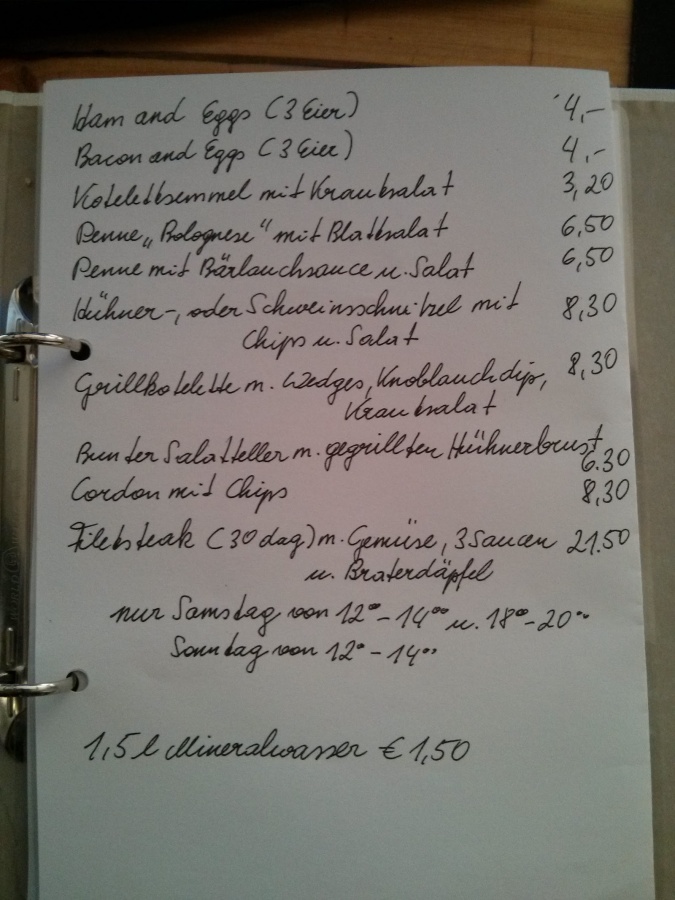 Ham and Eggs (3 Eier) 4,-
Bacon and Eggs (3 Eier) 4,-
Kotelettsemmel mit Krautsalat 3,20
Penne „Bolognese“ mit Blattsalat 6,50
Penne mit Bärlauchsauce u. Salat 6,50
Hühner-, oder Schweinsschnitzel mit 8,30
Chips u. Salat
Grillkotelette m. Wedges, Knoblauchdip, 8,30
Krautsalat
Bunter Salatteller m. gegrillten Hühnerbrust 6.30
Cordon mit Chips 8,30
Filetsteak (30 dag) m. Gemüse, 3 Saucen 21.50
u. Braterdäpfel
nur Samstag von 12°°-14°° u. 18°°-20°°
Sonntag von 12°°-14°°
1,5 l Mineralwasser € 1,50